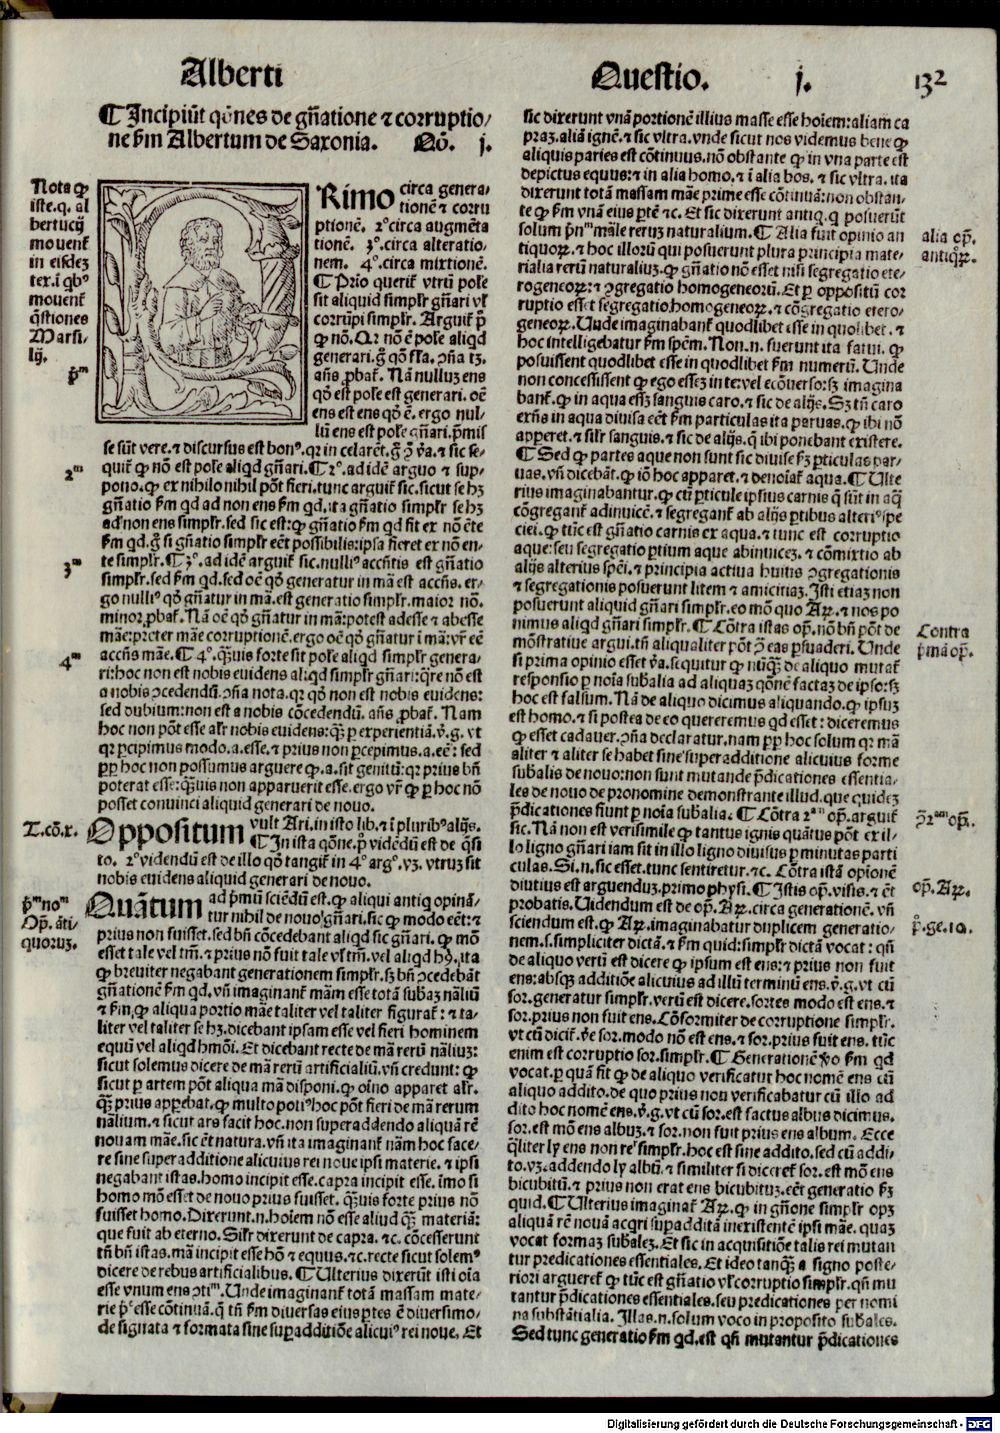 Alberti
Questio. j. 132
¶ Incipiūt qōnes de gn̄atione ⁊ corruptio/
ne ẜm Albertum de Saxonia. Qō. j.
Nota ꝙ
iste.q. al
bertucij
mouent̄
in eisdeꝫ
ter.ī qbꝰ
mouent̄
q̄stiones
Marsi/
lij.
PRimo circa genera/
tionē ⁊ corru
ptionē. 2º circa augmēta
tionē. 3º.circa alteratio/
nem. 4º.circa mixtionē.
¶ Prio querit̄ vtrū pole
sit aliquid simplr̄ gn̄ari vl̄
corrūpi simplr̄. Arguit̄ p̄
ꝙ nō. Qꝛ nō ē pole aliqd
generari.g̊ qō fl̄a. ꝯn̄a tꝫ.
an̄s ꝓbat̄. Nā nulluꝫ ens
qō est pole est generari. oē
ens est ens qō ē. ergo nul/
lū ens est pole gn̄ari. p̄mis
p̄ᵐ
se sūt vere.⁊ discursus est bonꝰ. qꝛ in celarēt. g̊ ꝯ v̄a. ⁊ sic se/
quit̄ ꝙ nō est pole aliqd gn̄ari. ¶ 2º. ad idē arguo ⁊ sup/
2ᵐ
pono. ꝙ ex nihilo nihil pōt fieri. tunc arguit̄ sic. sicut se hꝫ
gn̄atio ẜm qd ad non ens ẜm qd, ita gn̄atio simplr̄ se hꝫ
ad non ens simplr̄. sed sic est: ꝙ gn̄atio ẜm qd fit ex nō ēte
ẜm qd. g̊ si gn̄atio simplr̄ eēt possibilis: ipsa fieret ex nō en/
te simplr̄. ¶ 3º. ad idē arguit̄ sic. nulliꝰ accn̄tis est gn̄atio
3ᵐ
simplr̄. sed ẜm qd. sed oē qō generatur in mā est accn̄s. er/
go nulliꝰ qō gn̄atur in mā. est generatio simplr̄. maior nō.
minor ꝓbat̄. Nā oē qō gn̄atur in mā: potest adesse ⁊ abesse
māe: preter māe corruptionē. ergo oē qō gn̄atur ī mā: vr̄ eē
accn̄s māe. ¶ 4º. q̄ꝫuis forte sit pole aliqd simplr̄ genera/
4ᵐ
ri: hoc non est nobis euidens aliqd simplr̄ gn̄ari: qre nō est
a nobis ꝯcedendū. ꝯn̄a nota. qꝛ qō non est nobis euidens:
sed dubium: non est a nobis cōcedendū. an̄s ꝓbat̄. Nam
hoc non pōt esse alr̄ nobis euidens: q̄ꝫ p experientiā. v̄.g. vt
qꝛ pcipimus modo.a.esse. ⁊ prius non pcepimus.a.eē: sed
pp hoc non possumus arguere ꝙ.a.sit genitū: qꝛ prius bn̄
poterat esse: q̄ꝫuis non apparuerit esse. ergo vr̄ ꝙ p hoc nō
posset conuinci aliquid generari de nouo.
T.cō.x.
Oppositum vult Ari. in isto lib. ⁊ ī pluribꝰ alijs.
¶ In ista qōne. p̊ vidēdū est de q̄si
to. 2º videndū est de illo qō tangit̄ in 4º argº. vꝫ. vtruꝫ sit
nobis euidens aliquid generari de nouo.
p̄ᵐ noᵐ
Op. āti/
quoruꝫ.
Quātum ad p̄mū sciēdū est. ꝙ aliqui antiq opinā/
tur nihil de nouo gn̄ari. sic ꝙ modo eēt: ⁊
prius non fuisset. sed bn̄ cōcedebant aliqd sic gn̄ari. ꝙ mō
esset tale vel tm̄. ⁊ prius nō fuit tale vl̄ tm̄. vel aliqd hꝰ. ita
ꝙ breuiter negabant generationem simplr̄. sꝫ bn̄ ꝯcedebāt
gn̄ationē ẜm qd. vn̄ imaginant̄ mām esse totā subaꝫ nāliū
⁊ ẜm, ꝙ aliqua portio māe taliter vel taliter figurat̄: ⁊ ta/
liter vel taliter se hꝫ. dicebant ipsam esse vel fieri hominem
equū vel aliqd hmōi. Et dicebant recte de mā rerū nāliuꝫ:
sicut solemus dicere de mā rerū artificialiū. vn̄ credunt: ꝙ
sicut p artem pōt aliqua mā disponi. ꝙ oīno apparet alr̄.
q̄ꝫ prius apparebat. ꝙ multo potiꝰ hoc pōt fieri de mā rerum
nālium. ⁊ sicut ars facit hoc. non superaddendo aliquā rē
nouam māe. sic ēt natura. vn̄ ita imaginant̄ nām hoc face/
re sine superadditione alicuius rei noue ipsi materie. ⁊ ipsi
negabant istas. homo incipit esse. capra incipit esse. īmo si
homo mō esset de nouo prius fuisset. q̄ꝫuis forte prius nō
fuisset homo. Dixerunt.n. hoīem nō esse aliud q̄ꝫ materiā:
que fuit ab eterno. Silr̄ dixerunt de capra. ⁊c. cōcesserunt
tn̄ bn̄ istas. mā incipit esse hō ⁊ equus. ⁊c. recte sicut solemꝰ
dicere de rebus artificialibus. ¶ Ulterius dixerūt isti oīa
esse vnum ens ꝯtiᵐ. Unde imaginant̄ totā massam mate/
rie p̄ᵉ esse cōtinuā. q̄ tn̄ ẜm diuersas eius ptes ē diuersimo/
de signata ⁊ formata sine supadditiōe alicuiꝰ rei noue. Et
sic dixerunt vnā portionē illius masse esse hoīem: aliam ca
praꝫ. aliā ignē. ⁊ sic vltra. vnde sicut nos videmus bene ꝙ
aliquis paries est cōtinuus. nō obstante ꝙ in vna parte est
depictus equus: ⁊ in alia homo. ⁊ ī alia bos. ⁊ sic vltra. ita
dixerunt totā massam māe prime esse cōtinuā: non obstan/
te ꝙ ẜm vnā eius ptē ⁊c. Et sic dixerunt antiq. q posuerūt
solum pn̄ᵐ māle reruꝫ naturalium. ¶ Alia fuit opinio an
alia op̄.
antiq̊ꝝ.
tiquoꝝ. ⁊ hoc illorū qui posuerunt plura principia mate/
rialia rerū naturaliuꝫ. ꝙ gn̄atio nō esset nisi segregatio ete/
rogeneoꝝ: ⁊ ꝯgregatio homogeneorū. Et p oppositū cor
ruptio esset segregatio homogeneoꝝ. ⁊ cōgregatio etero/
geneoꝝ. Unde imaginabant̄ quodlibet esse in quolibet. ⁊
hoc intelligebatur ẜm spēm. Non.n. fuerunt ita fatui. ꝙ
posuissent quodlibet esse in quodlibet ẜm numerū. Unde
non concessissent ꝙ ego esseꝫ in te: vel ecōuerso: sꝫ imagina
bant̄. ꝙ in aqua esseꝫ sanguis caro. ⁊ sic de alijs. Sꝫ tn̄ caro
exn̄s in aqua diuisa eēt ẜm particulas ita paruas. ꝙ ibi nō
apperet. ⁊ silr̄ sanguis. ⁊ sic de alijs. q̄ ibi ponebant existere.
¶ Sed ꝙ partes aque non sunt sic diuise ẜꝫ pticulas par/
uas. vn̄ dicebāt. ꝙ iō hoc apparet. ⁊ denoīat̄ aqua. ¶ Ulte
rius imaginabantur. ꝙ cū pticule ipsius carnis q̄ sūt in aq̄
cōgregant̄ adinuicē. ⁊ segregant̄ ab alijs ptibus alteriꝰ spe
ciei. ꝙ tūc est gn̄atio carnis ex aqua. ⁊ tunc est corruptio
aque: seu segregatio ptium aque abinuiceꝫ. ⁊ cōmixtio ab
alijs alterius spēi. ⁊ principia actiua huius ꝯgregationis
⁊ segregationis posuerunt litem ⁊ amicitiaꝫ. Isti etiaꝫ non
posuerunt aliquid gn̄ari simplr̄. eo mō quo Aꝝ. ⁊ nos po
nimus aliqd gn̄ari simplr̄. ¶ Cōtra istas op̄. nō bn̄ pōt de
Contra
p̄mā op̄.
mōstratiue argui. tn̄ aliqualiter pōt ꝯ eas psuaderi. Unde
si prima opinio esset v̄a. sequitur ꝙ nūq̄ꝫ de aliquo mutat̄
responsio p noīa subalia ad aliquaꝫ qōnē factaꝫ de ipso: sꝫ
hoc est falsum. Nā de aliquo dicimus aliquando. ꝙ ipsuꝫ
est homo. ⁊ si postea de eo quereremus qd esset: diceremus
ꝙ esset cadauer. ꝯn̄a declaratur. nam pp hoc solum qꝛ mā
aliter ⁊ aliter se habet sine superadditione alicuius forme
subalis de nouo: non sunt mutande p̄dicationes essentia/
les de nouo de pronomine demonstrante illud. que quideꝫ
p̄dicationes fiunt p noīa subalia: ¶ Cōtra 2ᵃᵐ op̄. arguit̄
ꝯ 2ᵃᵐ op̄.
sic. Nā non est verisimile ꝙ tantus ignis quātus pōt ex il/
lo ligno gn̄ari iam sit in illo ligno diuisus p minutas parti
culas. Si.n. sic esset. tunc sentiretur. ⁊c. Cōtra istā opionē
diutius est arguenduꝫ. primo physi. ¶ Istis op̄. visis. ⁊ ēt
op̄. Aꝝ.
probatis. Uidendum est de op̄. Aꝝ. circa generationē. vn̄
sciendum est. ꝙ Aꝝ. imaginabatur duplicem generatio/
p̊.ge.10.
nem. s. simpliciter dictā. ⁊ ẜm quid: simplr̄ dictā vocat: qn̄
de aliquo verū est dicere ꝙ ipsum est ens: ⁊ prius non fuit
ens: absqꝫ additiōe alicuius ad illū terminū ens. v̄.g. vt cū
sor. generatur simplr̄. verū est dicere. sortes modo est ens. ⁊
sor. prius non fuit ens. Cōformiter de corruptione simplr̄.
vt cū dicit̄. v̄e sor. modo nō est ens. ⁊ sor. prius fuit ens. tūc
enim est corruptio sor. simplr̄. ¶ Generationē v̊o ẜm qd
vocat. p quā fit ꝙ de aliquo verificatur hoc nomē ens cū
aliquo addito. de quo prius non verificabatur cū illo ad
dito hoc nomē ens. v̄.g. vt cū sor. est factus albus dicimus.
sor. est mō ens albuꝫ. ⁊ sor. non fuit prius ens album. Ecce
q̄liter ly ens non rēꝰ simplr̄. hoc est sine addito. sed cū addi/
to. vꝫ. addendo ly albū. ⁊ similiter si diceret̄ sor. est mō ens
bicubitū. ⁊ prius non erat ens bicubituꝫ. eēt generatio ẜꝫ
quid. ¶ Ulterius imaginat̄ Aꝝ. ꝙ in gn̄one simplr̄ opꝫ
aliquā rē nouā acqri supadditā inexistentē ipsi māe. quaꝫ
vocat formaꝫ subaleꝫ. Et sic in acquisitiōe talis rei mutan
tur predicationes essentiales. Et ideo tanq̄ꝫ a signo poste/
riori argueret̄ ꝙ tūc est gn̄atio vl̄ corruptio simplr̄. qn̄ mu
tantur p̄dicationes essentiales. seu predicationes per nomi
na substātialia. Illas.n. solum voco in proposito subales.
Sed tunc generatio ẜm qd. est qn̄ mutantur p̄dicationes
Digitalisierung gefördert durch die Deutsche Forschungsgemeinschaft - DFG